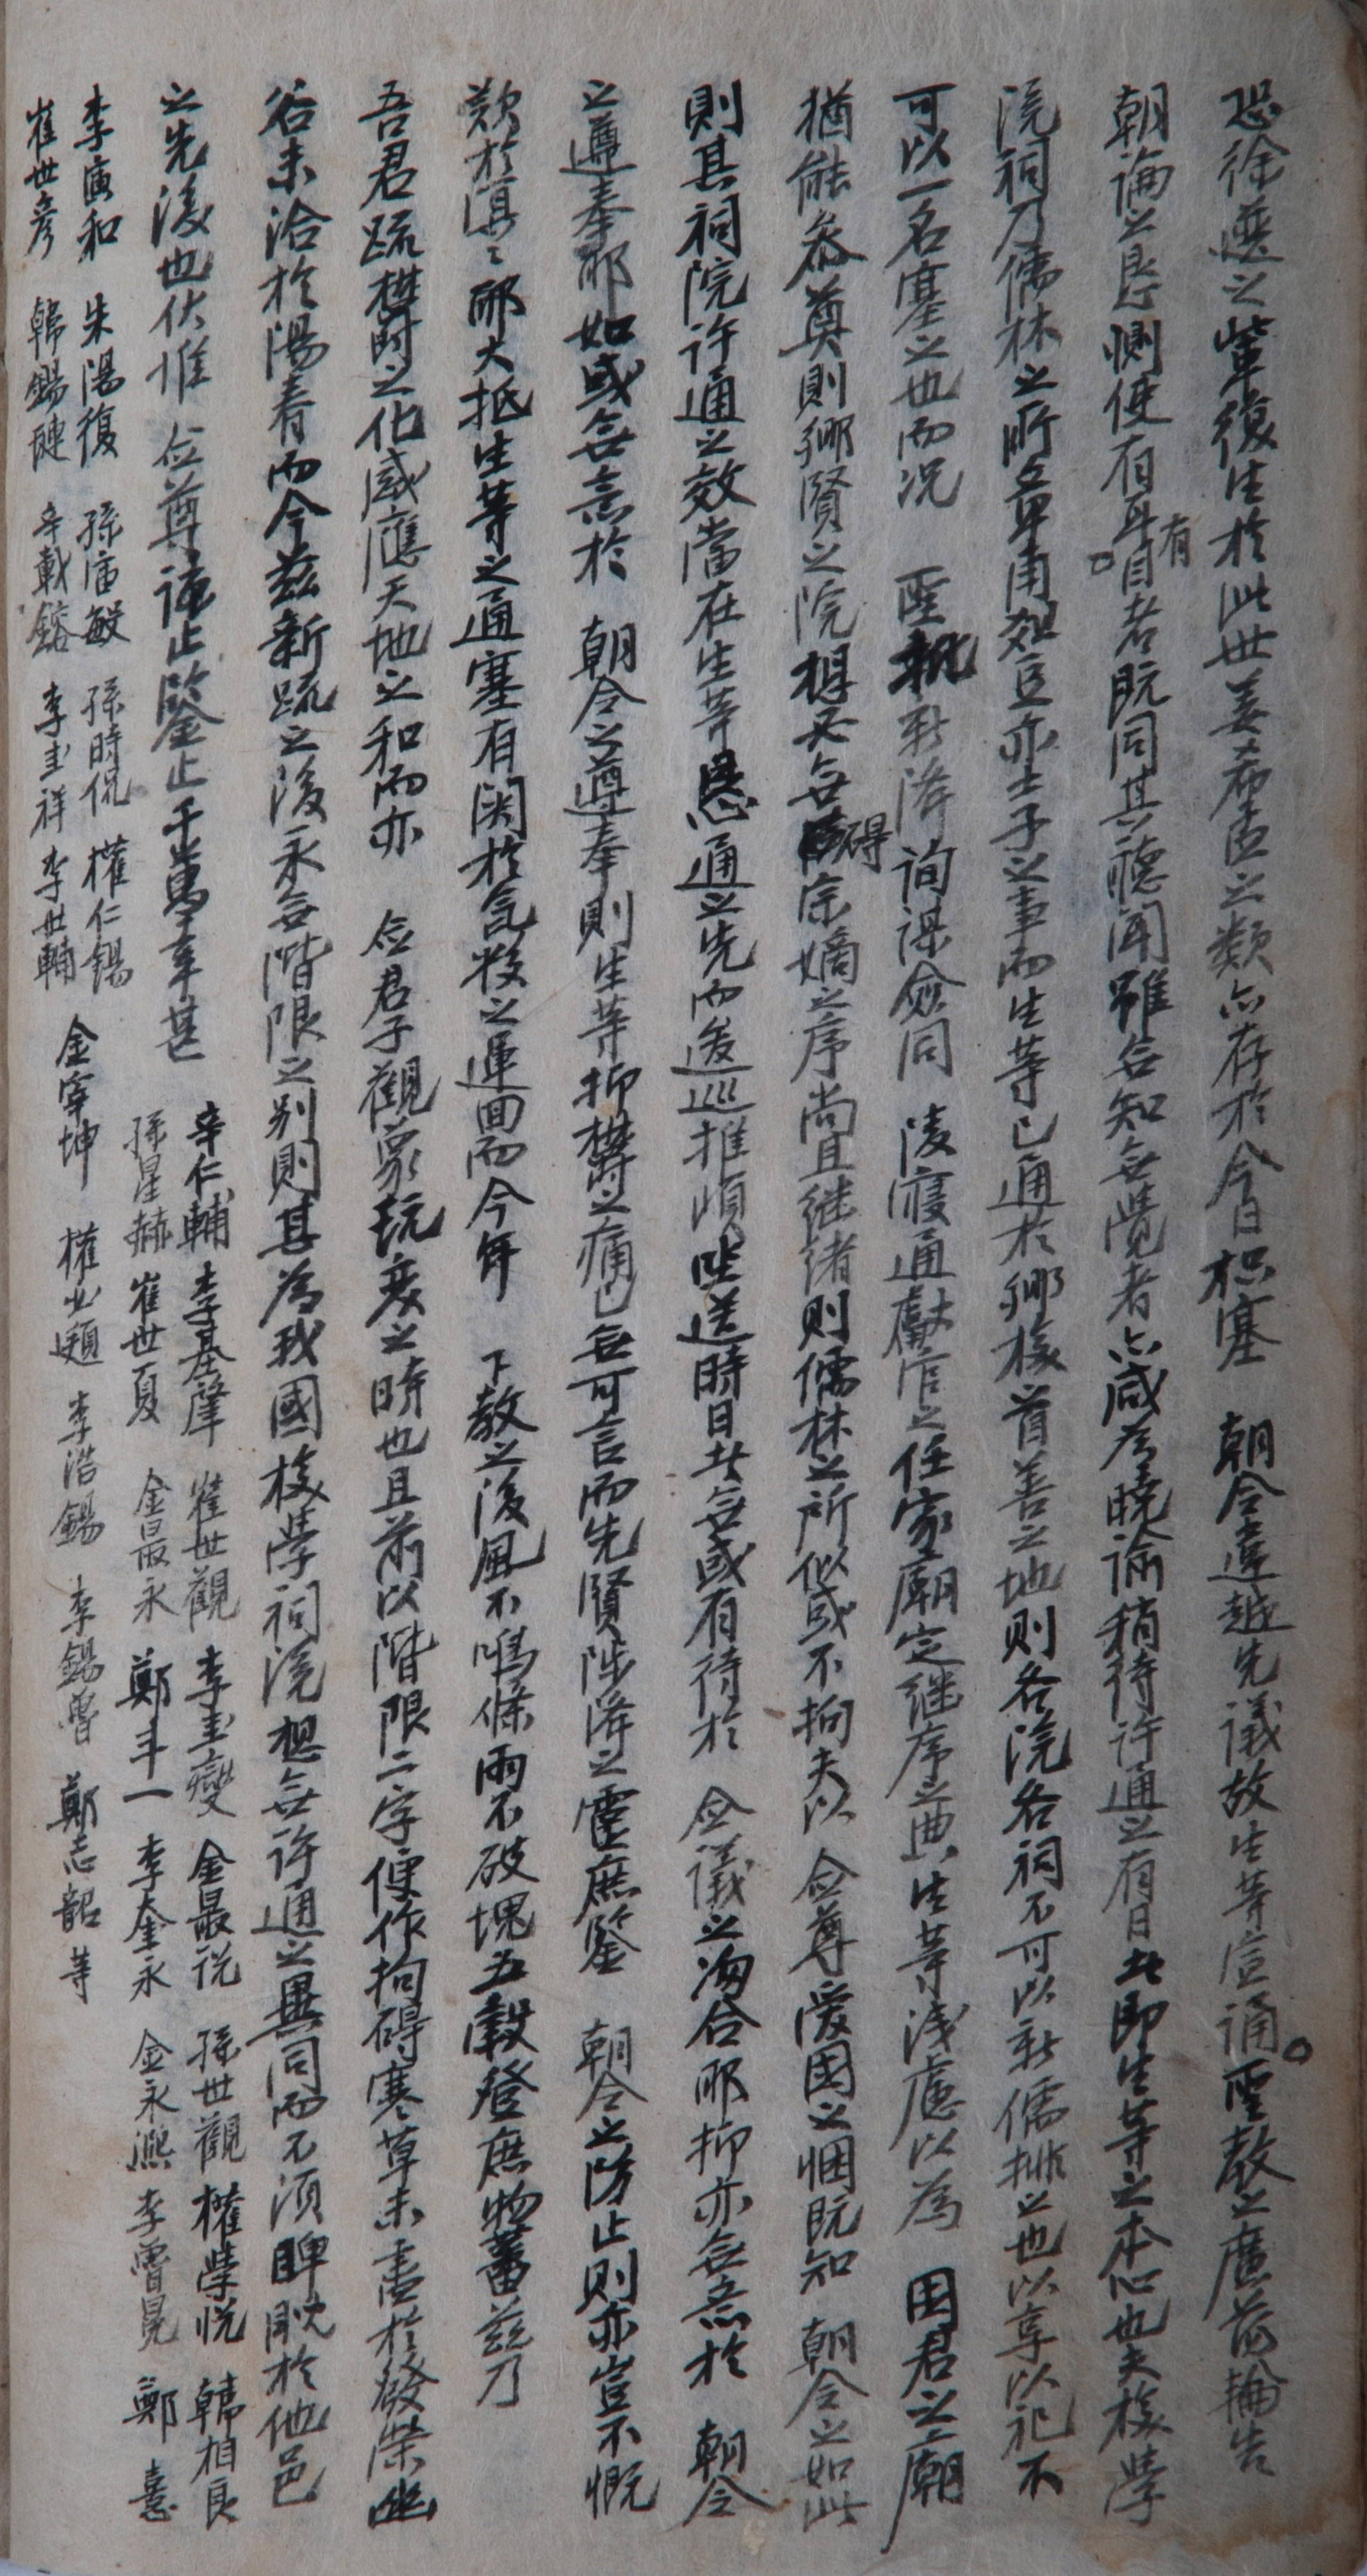 恐徐選之輩復生於此世姜希臣之類亦存於今日枳塞 朝令違越先議故生等宣誦聖敎之廣前輪告
朝論之懇惻使有耳有目者旣同其德聞雖無知無覺者亦咸爲曉諭稍待許通之有日此卽生等之本心也夫校學
院祠乃儒林之所尊甫俎豆亦士子之事而生等已通於鄕校首善之地則各院各祠不可以新儒排之也以享以祀不
可以一名塞之也而況 聖批新降詢謀僉同 陵寢通獻官之任家廟定繼序之典生等淺慮以爲 國君之廟
猶能參奠則鄕賢之院想必無碍宗嫡之序尙且繼緖則儒林之所似或不拘夫以 僉尊愛國之悃旣知 朝令之如此
則其祠院許通之效當在生等恳通之先而逡巡推順坐送時日此無或有待於 僉議之沕合耶抑亦無意於 朝令
之遵奉耶如或無意於 朝令之遵奉則生等抑欝之痛已無可言而先賢陟降之靈庶鑒 朝令之防止則亦豈不慨
歎於冥冥耶大抵生等之通塞有関於氣数之運回而今年 下敎之後風不鳴條雨不破塊五穀登庶物蕃玆乃
吾君疏欝之化感應天地之和而亦 僉君子觀象玩度之時也且前以階限二字便作拘碍寒草未盡於發榮幽
谷未洽於陽春而今玆新疏之後永無階限之別則其爲我國校學祠院想無許通之異同而不須睥睨於他邑
之先後也伏惟 僉尊諒止鑒止千萬幸甚
辛仁輔 李基肇 崔世觀 李圭燮 金最悅 孫世觀 權學悅 韓相良
孫星赫 崔世夏 金最永 鄭斗一 李奎永 金永凞 李魯晃 鄭憙
李寅和 朱陽復 孫庙毅 孫時侃 權仁錫 金宰坤 權必題 李浩錫 李錫魯 鄭志韶 等
崔世彦 韓錫璉 辛載鎔 李圭祥 李世輔